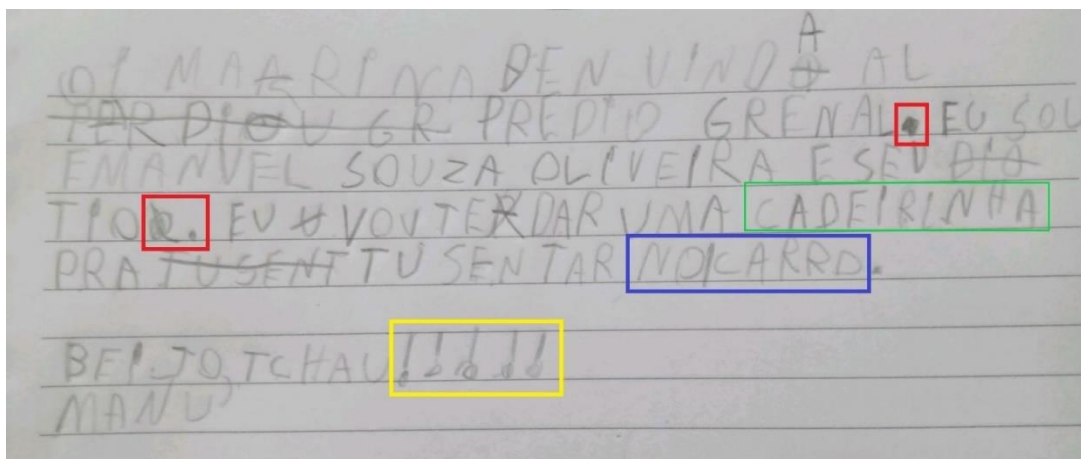 OI MAARINA BEN VINDA AL
PERDIOU GR PREDIO GRENAL. EU SOU
EMANUEL SOUZA OLIVEIRA E SEU DIO
TIO. EU U VOU TER DAR UMA CADEIRINHA
PRA TU SENT TU SENTAR NO/CARRO.
BEIJO, TCHAU!!!!!
MANU